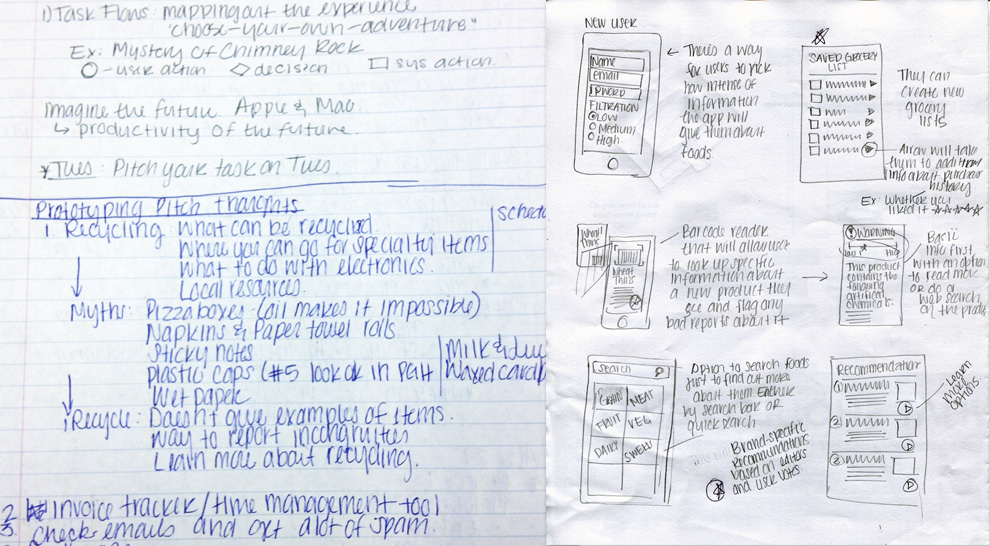 1) Task Flows: mapping out the experience
"choose-your-own-adventure"
Ex: Mystery of Chimney Rock
- user action - decision sys action.
imagine the future. Apple & Mac
↳ productivity of the future.
*Tues: Pitch your task on Tues.
Prototyping Pitch thoughts
1. Recycling: What can be recycled.
Where you can go for specialty items
What to do with electronics.
Local resources.
Myths: Pizza boxes (oil makes it impossible)
Napkins & Paper towel rolls
Sticky notes
Plastic caps (#5 look ok in
Wet paper
Milk &
Waxed
iRecycle: Doesn't give examples of items.
Way to report incongruities
Learn more about recycling.
2. invoice tracker/time management tool
3. check emails and get a lot of spam.
NEW USER
Name
email
PSWORD
FILTRATION
Low
Medium
High
← There's a way
for users to pick
how intense of
information
the app will
give them about
foods.
SAVED GROCERY
LIST
They can
create new
grocery
lists
Arrow will take
them to additional
info about purchase
history
Ex: Whether you
liked it ☆☆☆☆☆
Wheat
Thins
Wheat
Thins
Barcode reader
that will allow user
to look up specific
information about
a new product they
see and flag any
bad reports about it
→
WARNING
High
This product
contains the
following
artificial
chemicals:
Basic
info first
with an option
to read more
or do a
web search
on the product
Search
GRAIN MEAT
FRUIT VEG
DAIRY SWEETS
Option to search foods
just to find out more
about them
by search bar or
quick search
Brand-specific
Recommendations
based on editors
and user votes.
Recommendation
1)
2)
2)
Learn
More
Options